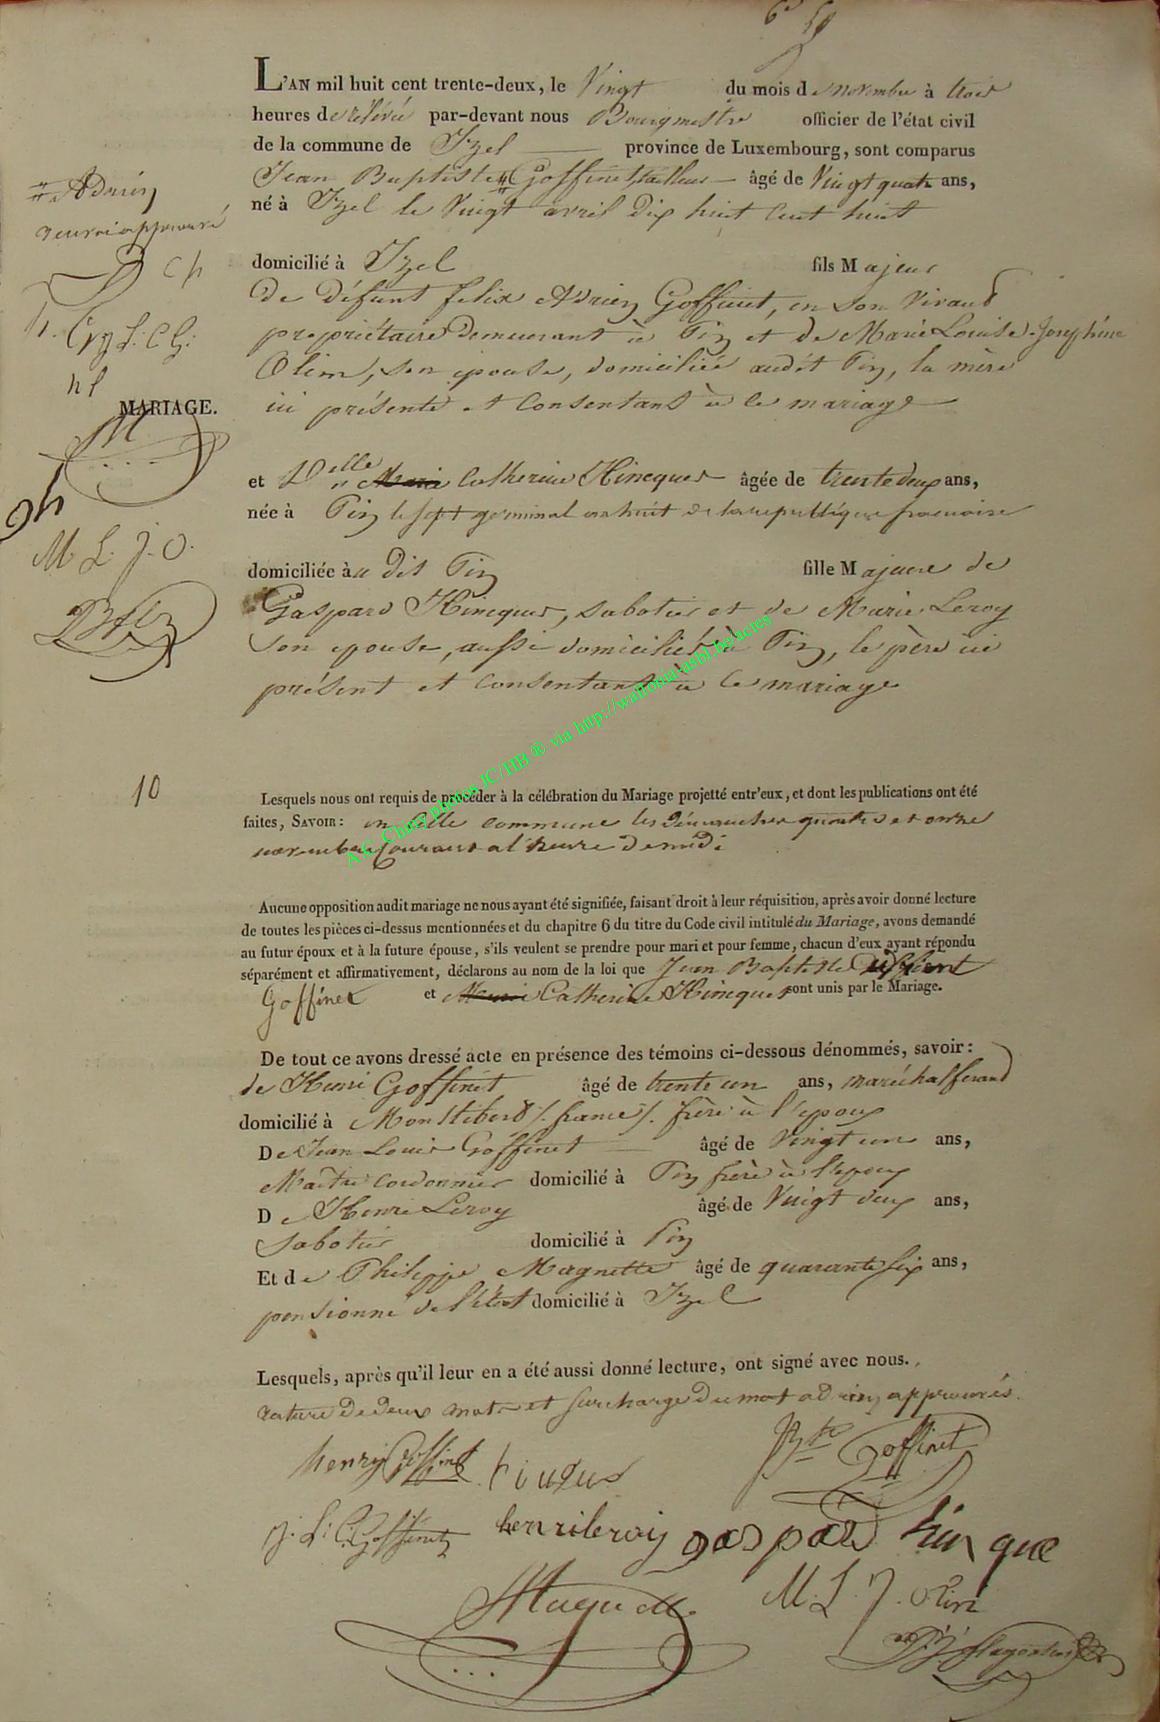 L'AN mil huit cent trente-deux, le Vingt du mois de novembre à trois
heures de relévée par-devant nous Bourgmestre officier de l'état civil
de la commune de Izel province de Luxembourg, sont comparus
Jean Baptiste Goffinet, tailleur âgé de Vingt quatre ans,
né à Izel le Vingt avril dix huit cent huit
domicilié à Izel fils Majeur
de défunt felix Adrien Goffinet, en son Vivant
propriétaire demeurant à Pin et de Marie Louise Josephine
Olim, son epouse, domiciliée audit Pin, la mère
ici présente et Consentant à ce mariage
Adrien
renvoi approuvé
C h
G: J. L: C G:
h l
MARIAGE.
M
gh
M L. J. O.
10
et Delle Marie Catherine Hineques âgée de trente deux ans,
née à Pin le sept germinal an huit de la republique francaise
domiciliée àu dit Pin fille Majeure de
Gaspard Hineques, sabotier et de Marie Leroy
son epouse, aussi domiciliés à Pin, le père ici
présent et Consentant à ce mariage
Lesquels nous ont requis de procéder à la célébration du Mariage projetté entr'eux, et dont les publications ont été
faites, SAVOIR: en cette commune les dimanches quatre et onze
novembre Courant a l'heure de midi
Aucune opposition audit mariage ne nous ayant été signifiée, faisant droit à leur réquisition, après avoir donné lecture
de toutes les pièces ci-dessus mentionnées et du chapitre 6 du titre du Code civil intitulé du Mariage, avons demandé
au futur époux et à la future épouse, s'ils veulent se prendre pour mari et pour femme, chacun d'eux ayant répondu
séparément et affirmativement, déclarons au nom de la loi que Jean Baptiste Adrient
Goffinet et Marie Catherine Hineques sont unis par le Mariage.
De tout ce avons dressé acte en présence des témoins ci-dessous dénommés, savoir:
de Henri Goffinet âgé de trente un ans, maréchal ferand
domicilié à Montlibert /. france /. frère à l'epoux
De Jean Louis Goffinet âgé de Vingt un ans,
Maître Cordonnier domicilié à Pin frère à l'epoux
De Henri Leroy âgé de Vingt deux ans,
sabotier domicilié à Pin
Et de Philippe Magnette âgé de quarante six ans,
pensionné de l'état domicilié à Izel
Lesquels, après qu'il leur en a été aussi donné lecture, ont signé avec nous.
rature de deux mots et surcharge du mot adrien approuvés.
henry Goffinet hinques Bte Goffinet
J. L: C: Goffinet henri leroy gaspard hinque
Magnette M. L. J. Olim
A.C. Chiny photos JC/HB ® via http://wallonia-asbl.be/actes